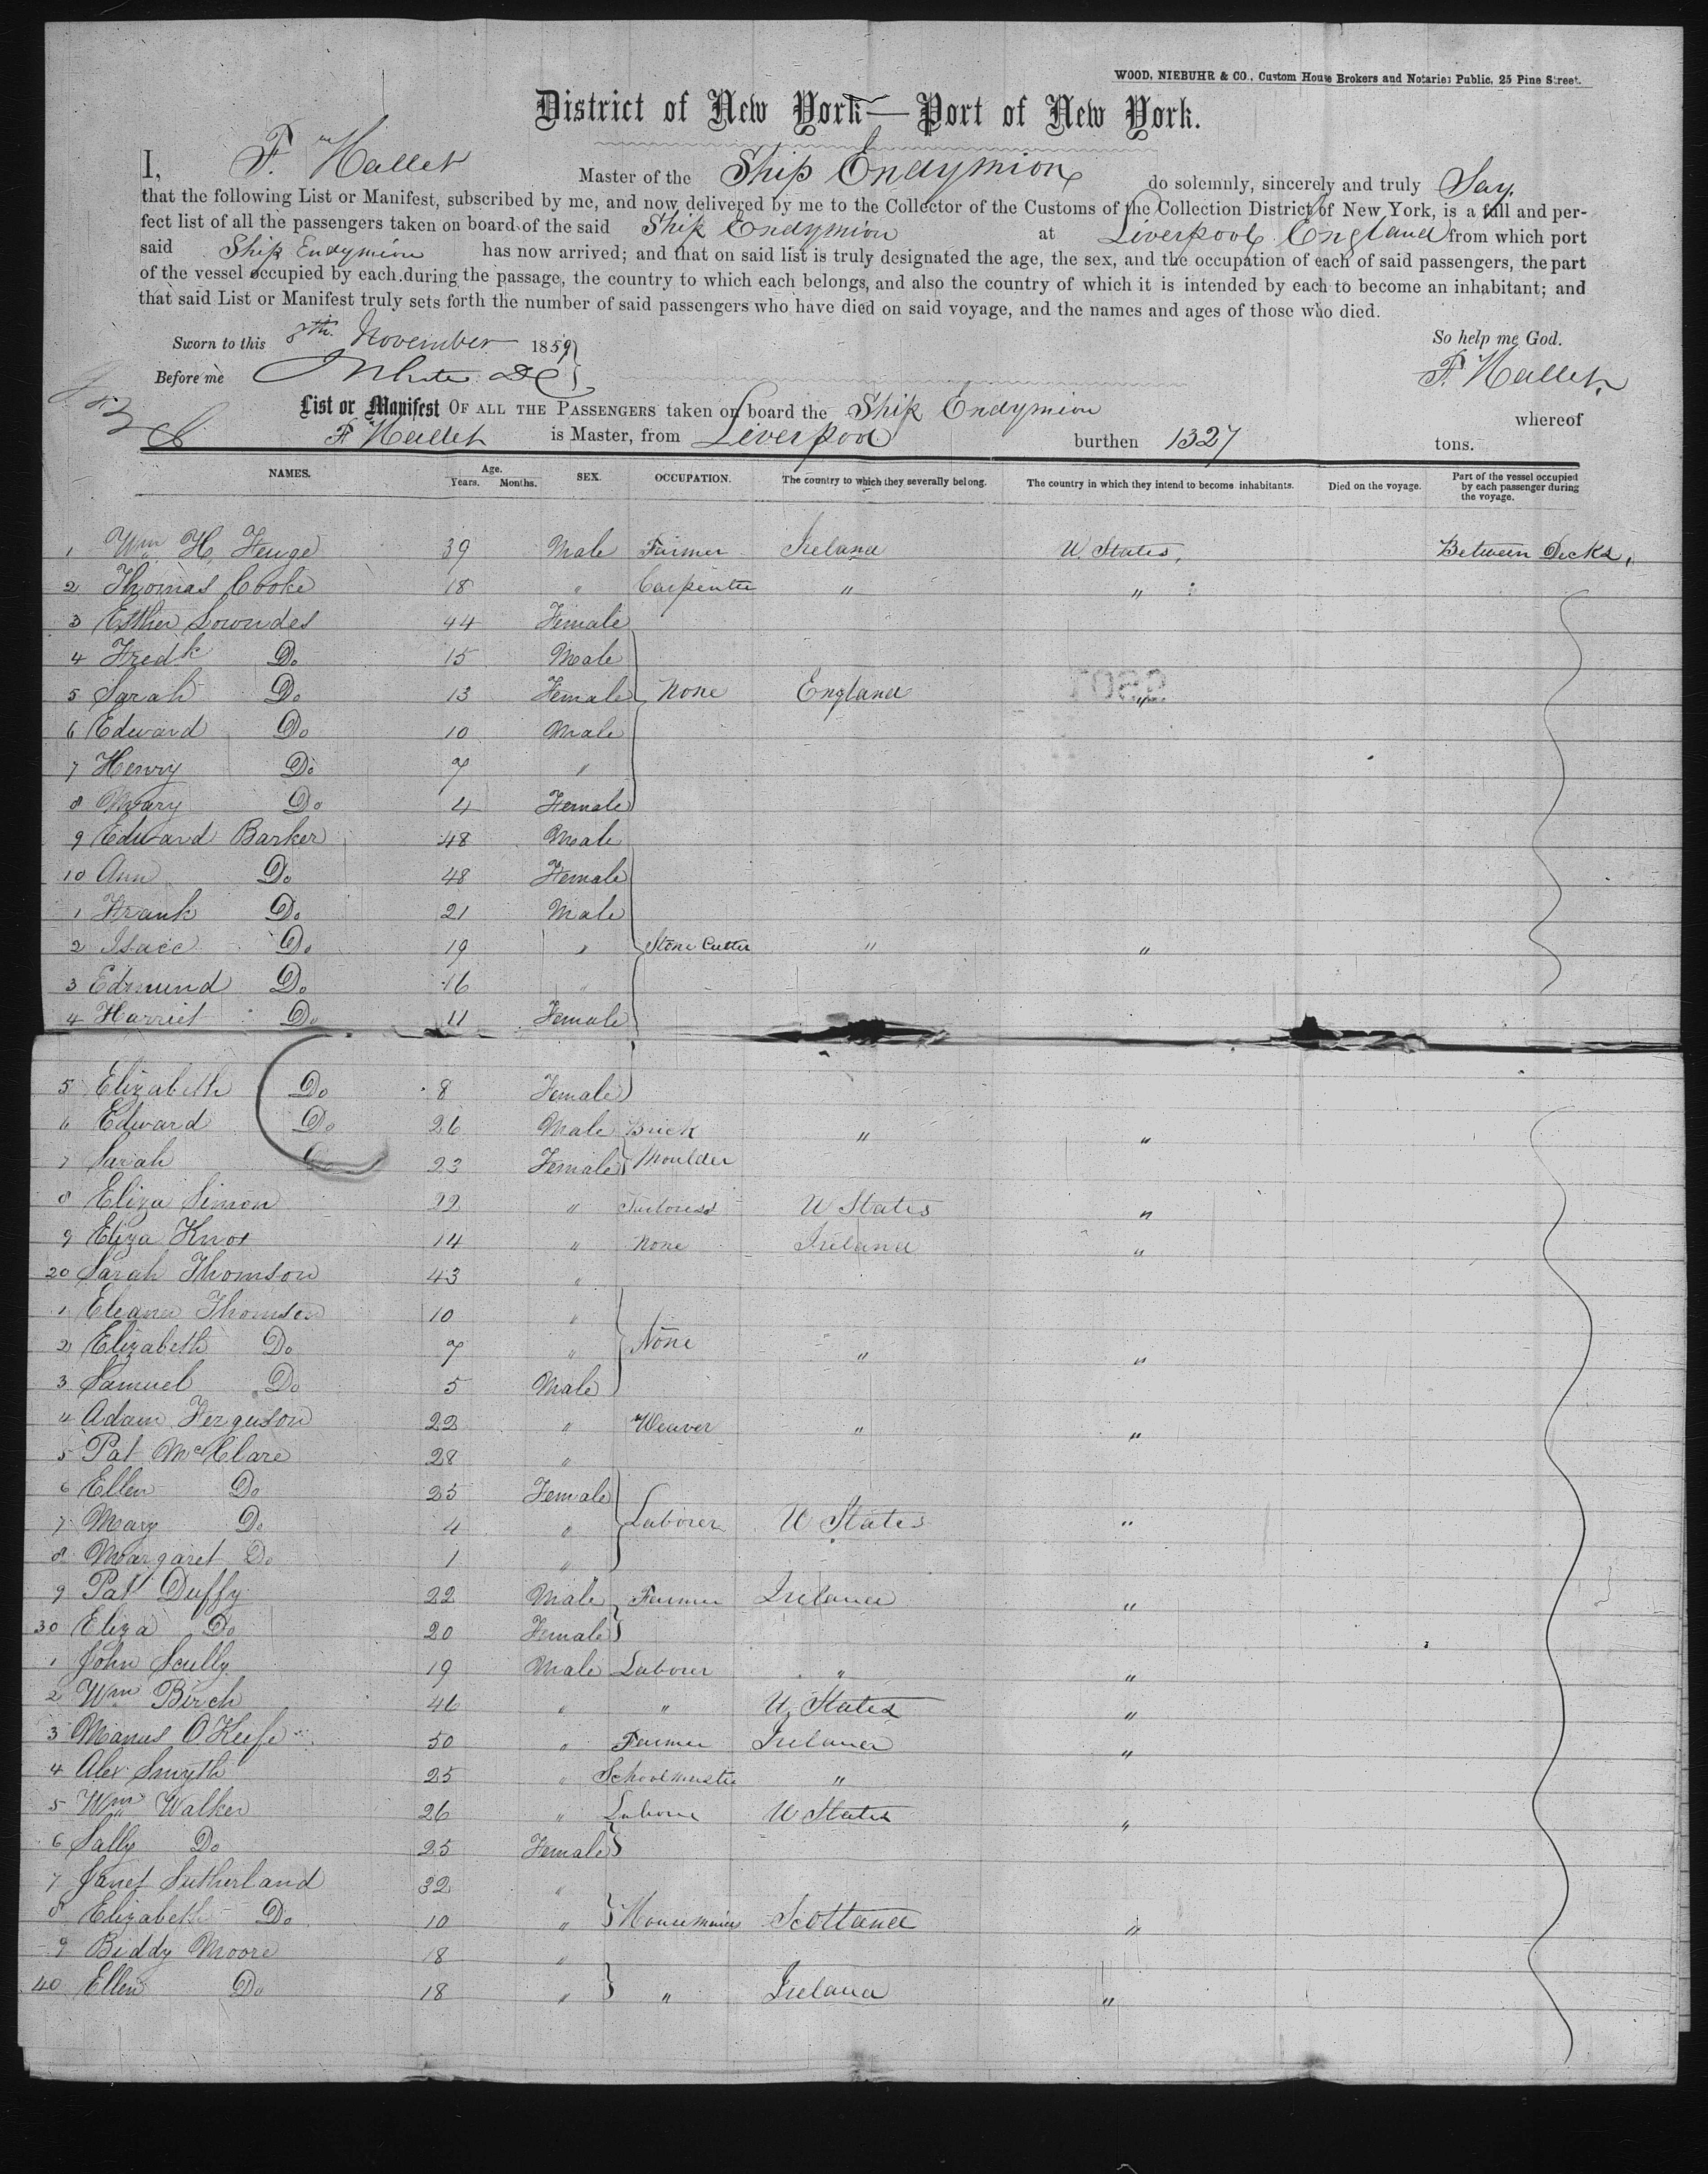 WOOD, NIEBUHR & CO., Custom House Brokers and Notaries Public, 25 Pine Street.
District of New York—Port of New York.
I, F. Hallet Master of the Ship Endymion do solemnly, sincerely and truly Say.
that the following List or Manifest, subscribed by me, and now delivered by me to the Collector of the Customs of the Collection District of New York, is a full and per-
fect list of all the passengers taken on board of the said Ship Endymion at Liverpool England from which port
said Ship Endymion has now arrived; and that on said list is truly designated the age, the sex, and the occupation of each of said passengers, the part
of the vessel occupied by each during the passage, the country to which each belongs, and also the country of which it is intended by each to become an inhabitant; and
that said List or Manifest truly sets forth the number of said passengers who have died on said voyage, and the names and ages of those who died.
Sworn to this 8th November 1859 So help me God.
Before me F. Hallet
List or Manifest OF ALL THE PASSENGERS taken on board the Ship Endymion whereof
F Hallet is Master, from Liverpool burthen 1327 tons.
NAMES. Age. Years. Months. SEX. OCCUPATION. The country to which they severally belong. The country in which they intend to become inhabitants. Died on the voyage. Part of the vessel occupied by each passenger during the voyage.
1 Wm H, 39 Male Farmer Ireland U, States, Between Decks,
2 Thomas Cooke 18 " Carpenter " "
3 Esther Lowndes 44 Female
4 Fredk Do 15 Male
5 Sarah Do 13 Female None England "
6 Edward Do 10 Male
7 Henry Do 7 "
8 Mary Do 4 Female
9 Edward Barker 48 Male
10 Ann Do 48 Female
1 Frank Do 21 Male
2 Isacc Do 19 " Stone Cutter " "
3 Edmund Do 16 "
4 Harriet Do 11 Female
5 Elizabeth Do 8 Female
6 Edward Do 26 Male Brick " "
7 Sarah Do 23 Female Moulder
8 Eliza Simon 22 " U States "
9 Eliza Knox 14 " None Ireland "
20 Sarah Thomson 43 "
1 Eleanor Thomson 10 "
2 Elizabeth Do 7 " None " "
3 Samuel Do 5 Male
4 Adam Ferguson 22 " Weaver " "
5 Pat McClare 28 "
6 Ellen Do 25 Female
7 Mary Do 4 " Laborer U States "
8 Margaret Do 1 "
9 Pat Duffy 22 Male Farmer Ireland "
30 Eliza Do 20 Female
1 John Scully 19 Male Laborer " "
2 Wm Birch 46 " " U, States "
3 Manus O'Keefe 50 " Farmer Ireland "
4 Alex Smyth 25 " Schoolmaster "
5 Wm Walker 26 " Laborer U States "
6 Sally Do 25 Female
7 Janet Sutherland 32 "
8 Elizabeth Do 10 " Scotland "
9 Biddy Moore 18 "
40 Ellen Do 18 " " Ireland "